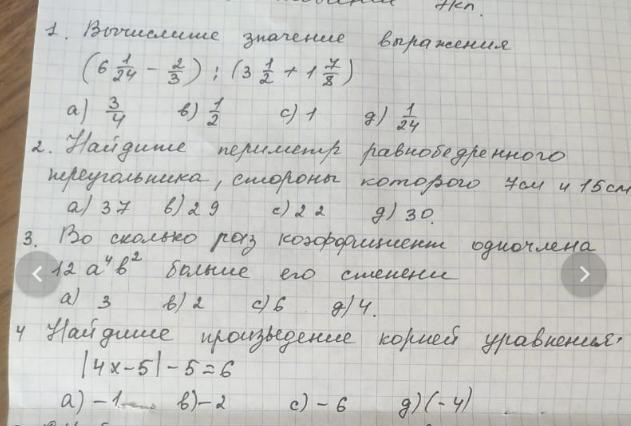 7кл.
1. Вычислите значение выражения
(6 1/24 - 2/3) : (3 1/2 + 1 7/8)
а) 3/4 в) 1/2 с) 1 д) 1/24
2. Найдите периметр равнобедренного
треугольника, стороны которого 7см и 15см
а) 37 в) 29 с) 22 д) 30.
3. Во сколько раз коэффициент одночлена
12 a⁴b² больше его степени
а) 3 в) 2 с) 6 д) 4.
4 Найдите произведение корней уравнения:
|4x-5|-5=6
а) -1 в) -2 с) -6 д) (-4)